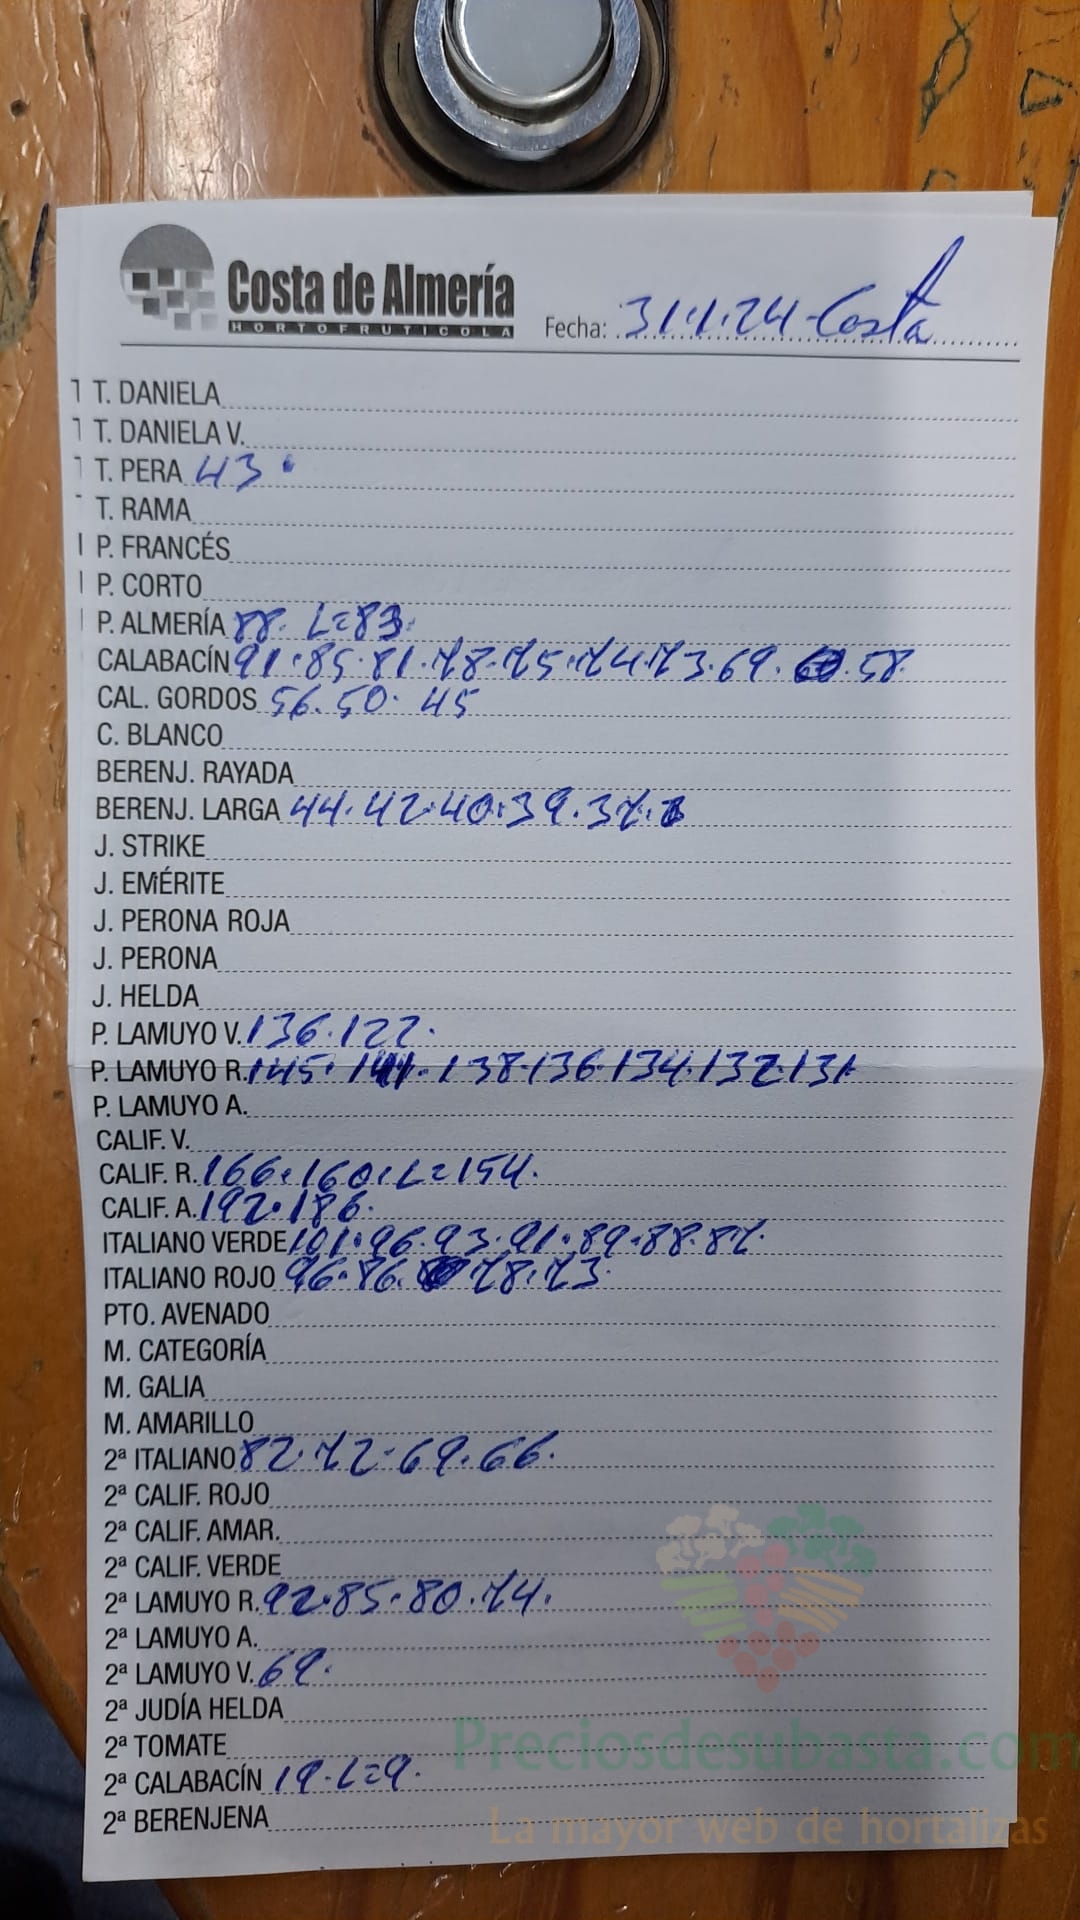 Costa de Almería
HORTOFRUTICOLA
Fecha: 31.1.24-Costa
T. DANIELA
T. DANIELA V.
T. PERA 43.
T. RAMA
P. FRANCÉS
P. CORTO
P. ALMERÍA 88. L=83.
CALABACÍN 91.85.81.78.75.74.73.69. .58.
CAL. GORDOS 56.50. 45
C. BLANCO
BERENJ. RAYADA
BERENJ. LARGA 44.42.40.39.37.
J. STRIKE
J. EMÉRITE
J. PERONA ROJA
J. PERONA
J. HELDA
P. LAMUYO V. 136.122.
P. LAMUYO R. 145. 141. 138.136.134.132.131.
P. LAMUYO A.
CALIF. V.
CALIF. R. 166.160.L=154.
CALIF. A. 192.186.
ITALIANO VERDE 101.96.93.91.89.88.87.
ITALIANO ROJO 96.86. 78.73.
PTO. AVENADO
M. CATEGORÍA
M. GALIA
M. AMARILLO
2ª ITALIANO 82.72.69.66.
2ª CALIF. ROJO
2ª CALIF. AMAR.
2ª CALIF. VERDE
2ª LAMUYO R. 92.85.80.74.
2ª LAMUYO A.
2ª LAMUYO V. 69.
2ª JUDÍA HELDA
2ª TOMATE
2ª CALABACÍN 19.L=9.
2ª BERENJENA
Preciosdesubasta.com
La mayor web de hortalizas